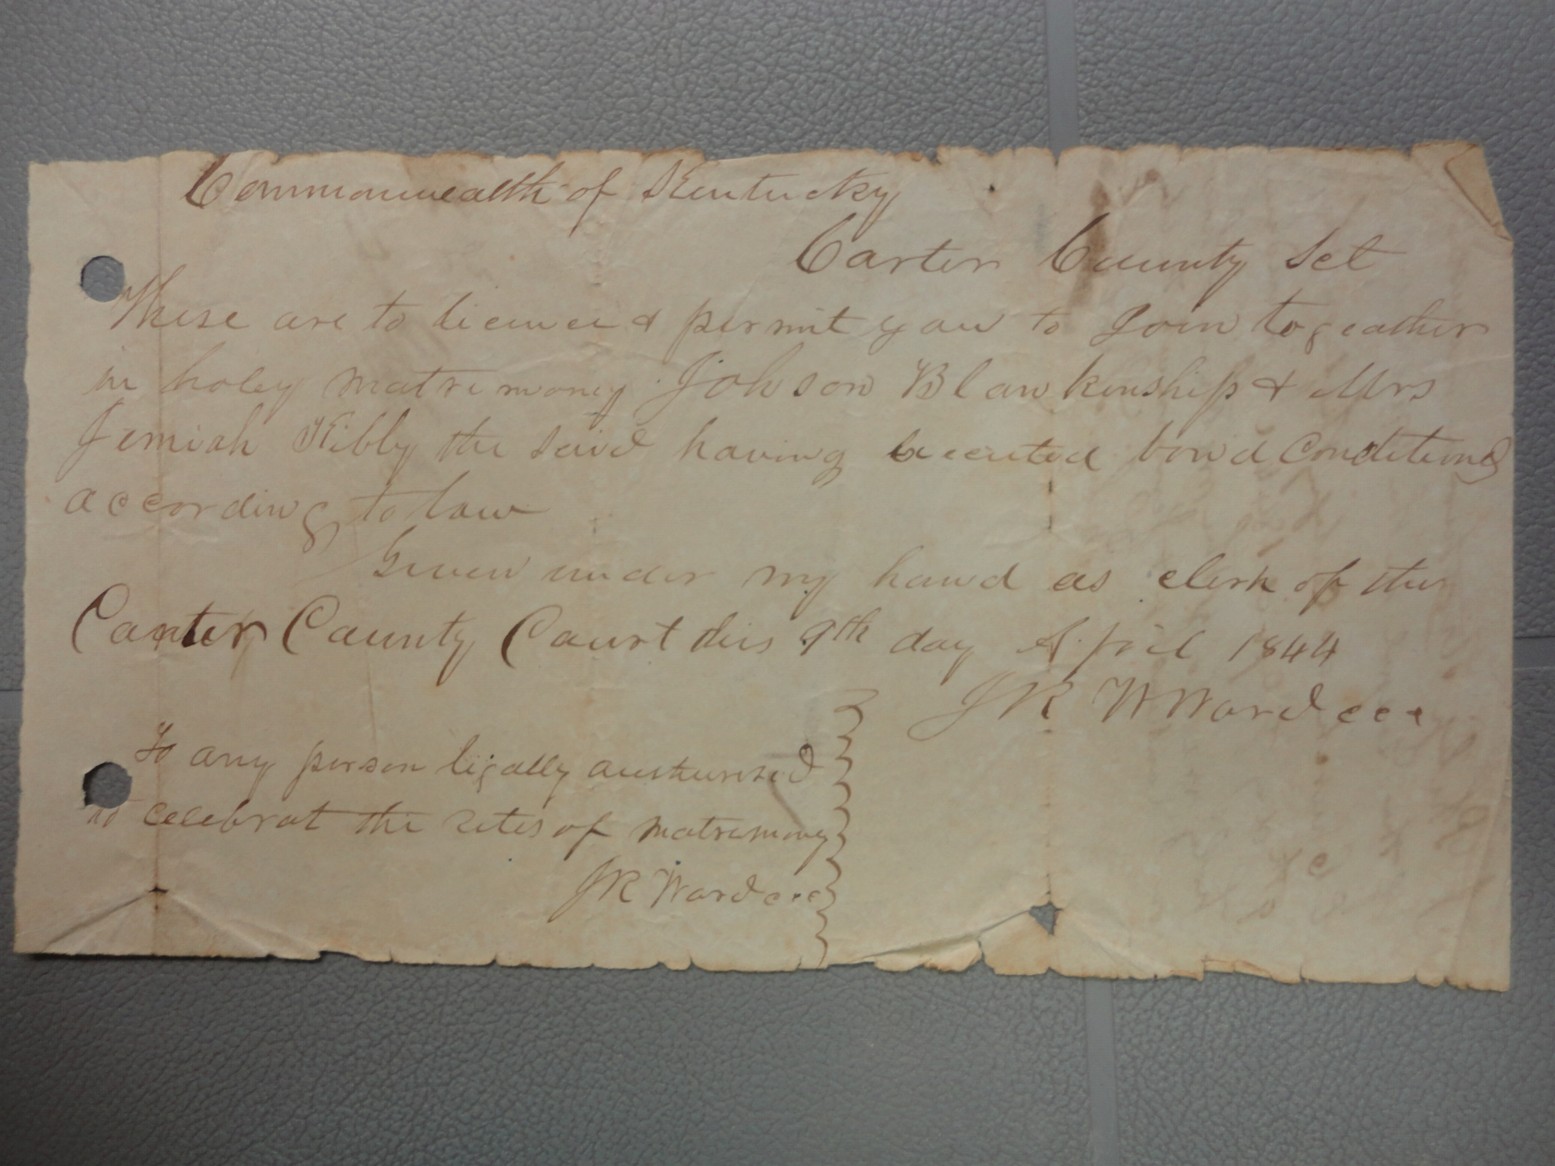 Commonwealth of Kentucky
Carter County Sct
These are to licence & permit you to Join togeather
in holey matrimony Johson Blankenship & Mrs
Jemiah Kibby the said having executed bond Conditiond
according to law
Given under my hand as clerk of the
Carter County Court this 9th day April 1844
J R W Ward ccc
To any person ligally authurised
to celebrat the rites of matrimony
J R Ward ccc